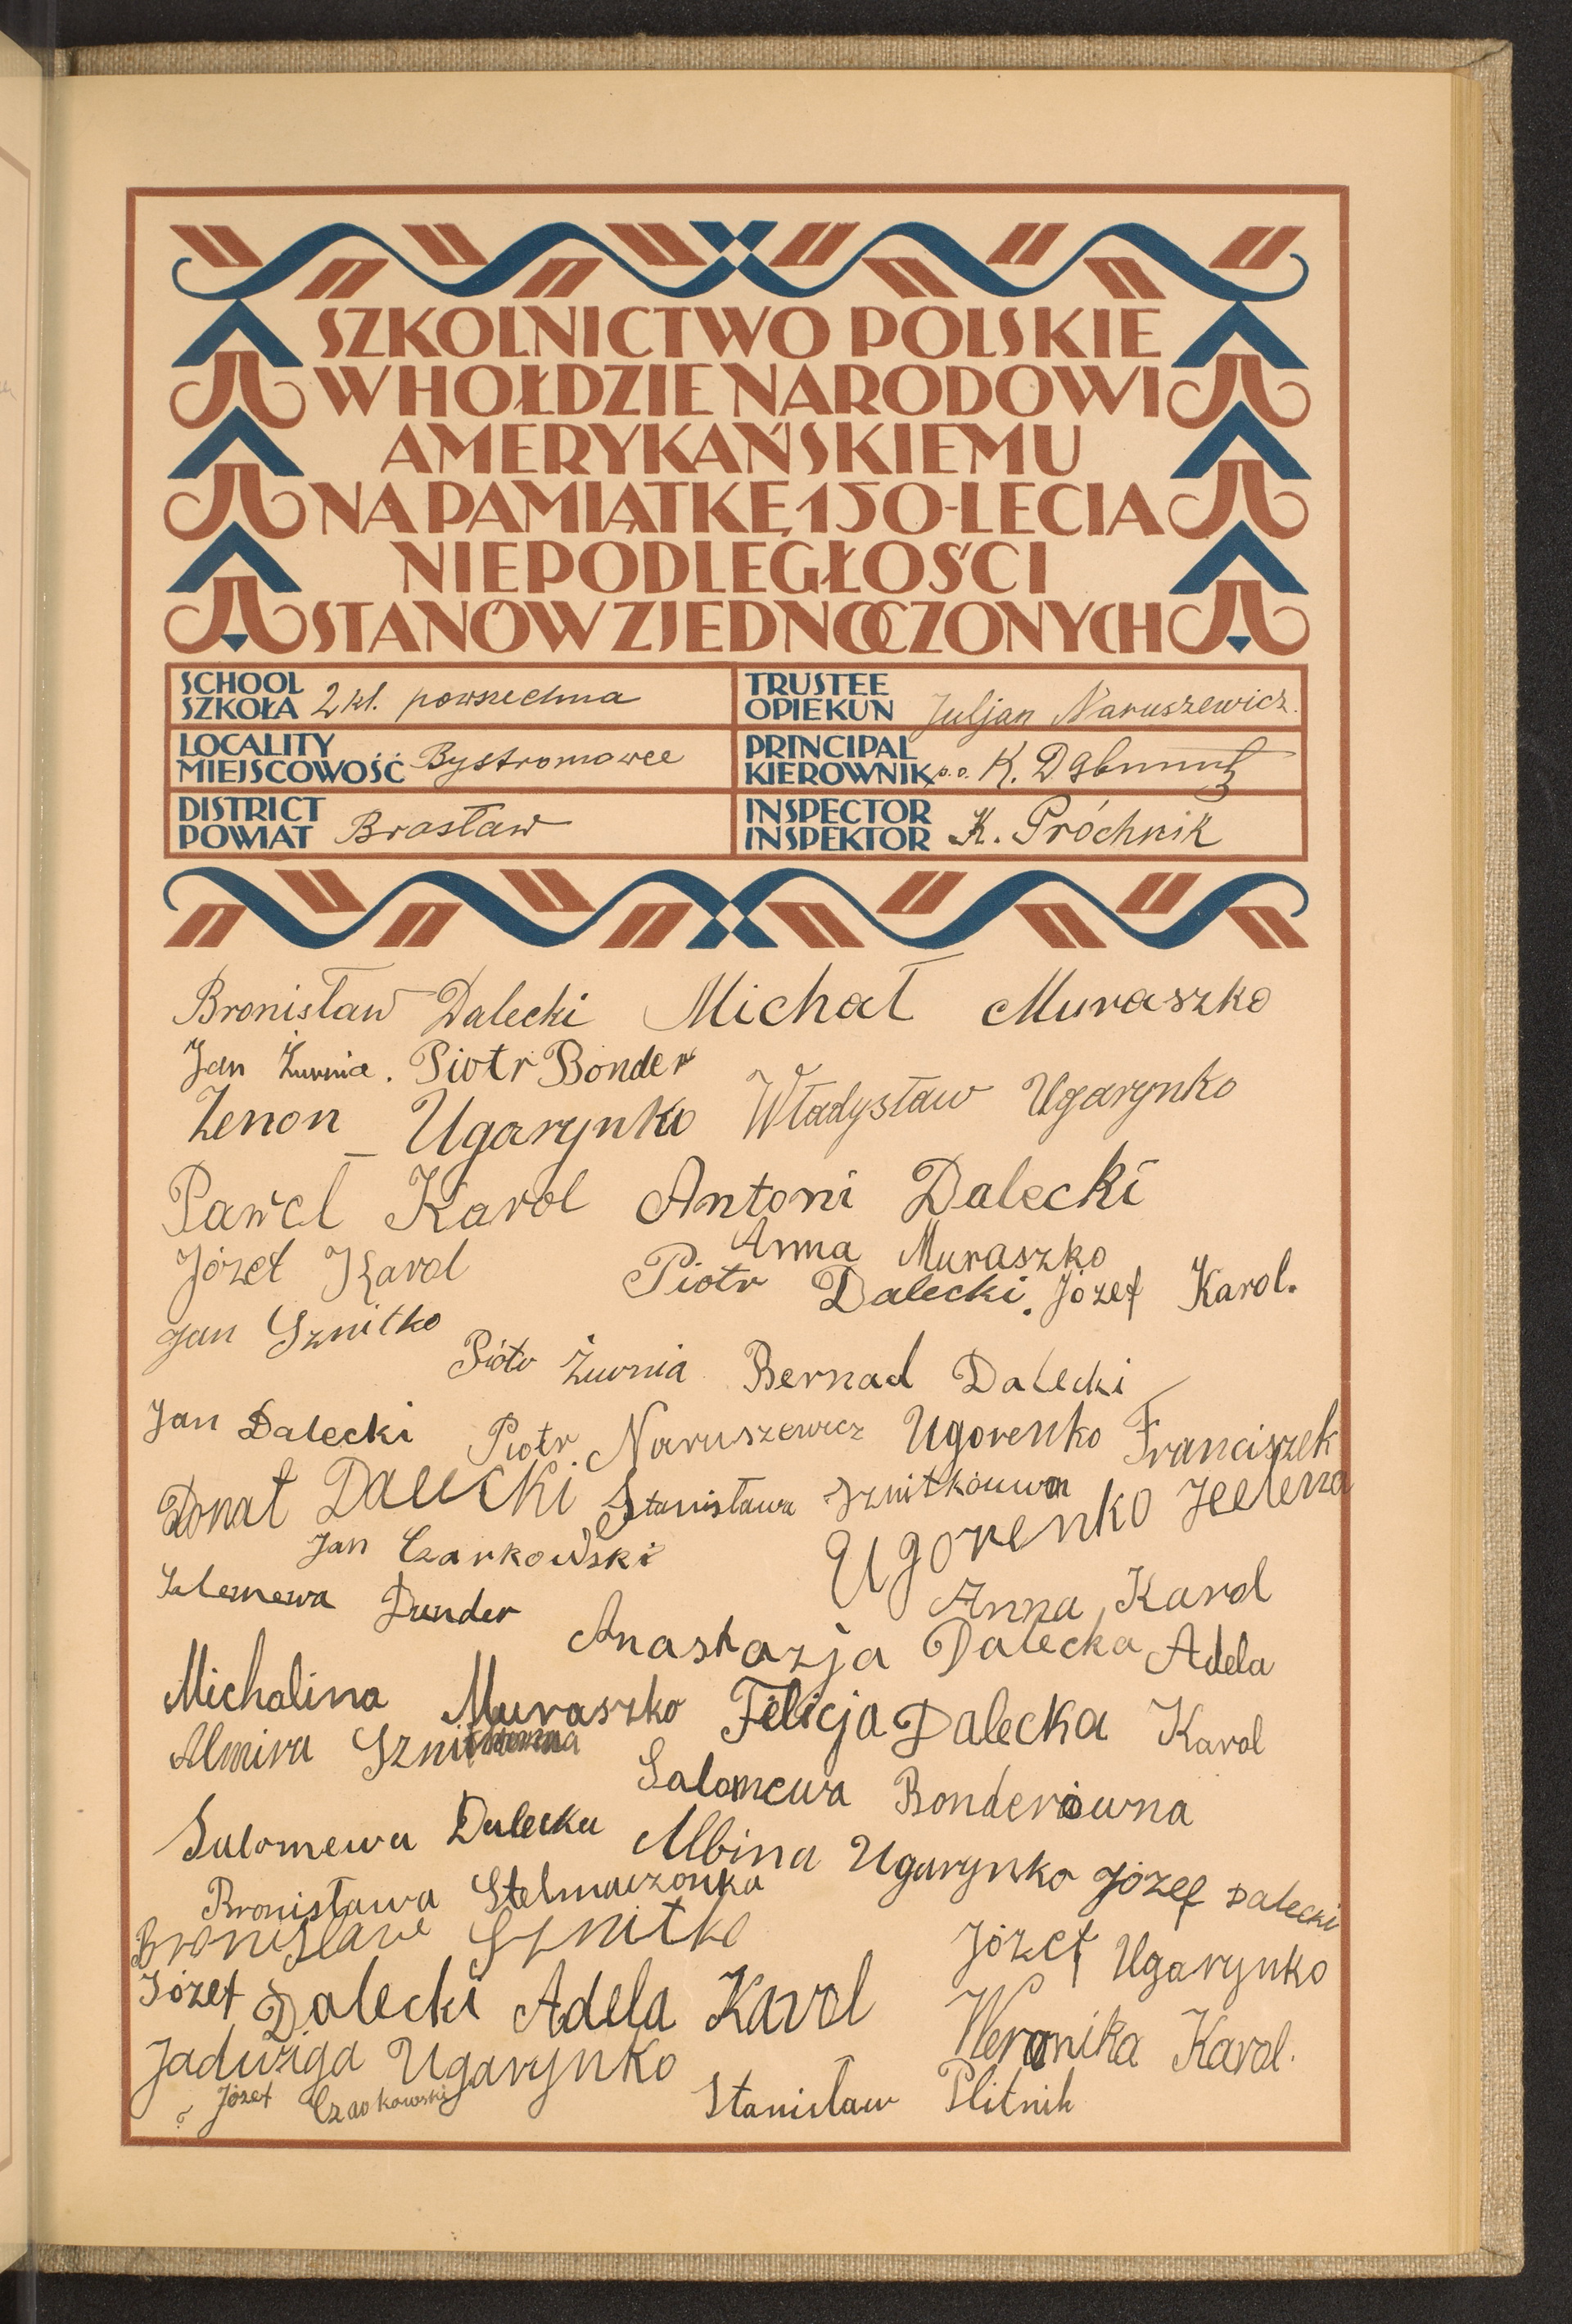 SZKOLNICTWO POLSKIE
W HOŁDZIE NARODOWI
AMERYKAŃSKIEMU
NA PAMIĄTKĘ 150-LECIA
NIEPODLEGŁOŚCI
STANÓW ZJEDNOCZONYCH
SCHOOL
SZKOŁA 2 kl. powszechna
TRUSTEE
OPIEKUN Juljan Naruszewicz.
LOCALITY
MIEJSCOWOŚĆ Bystromowce
PRINCIPAL
KIEROWNIK p.o. K.
DISTRICT
POWIAT Brasław
INSPECTOR
INSPEKTOR K. Próchnik
Bronisław Dalecki Michał Muraszko
Jan Żurnia. Piotr Bonder
Zenon Ugarynko Władysław Ugarynko
Paweł Karol Antoni Dalecki
Józef Karol Anna Muraszko
Piotr Dalecki. Józef Karol.
Jan Sznitko
Piotr Żurnia Bernad Dalecki
Jan Dalecki Piotr Naruszewicz Ugorenko Franciszek
Donat Dalecki Stanisława Sznitkóuwna
Jan Czarkowski Ugorenko Helena
Dunder Anna Karol
Anastazja Dalecka Adela
Michalina Muraszko Felicja Dalecka Karol
Almira
Salomewa Bonderówna
Salomewa Dalecka Albina Ugarynko Józef Dalecki
Bronisława Stelmaczonka
Bronisława Sznitko Józef Ugarynko
Józef Dalecki Adela Karol Weronika Karol.
Jadwiga Ugarynko
Józef Czarkowski Stanisław Plitnik